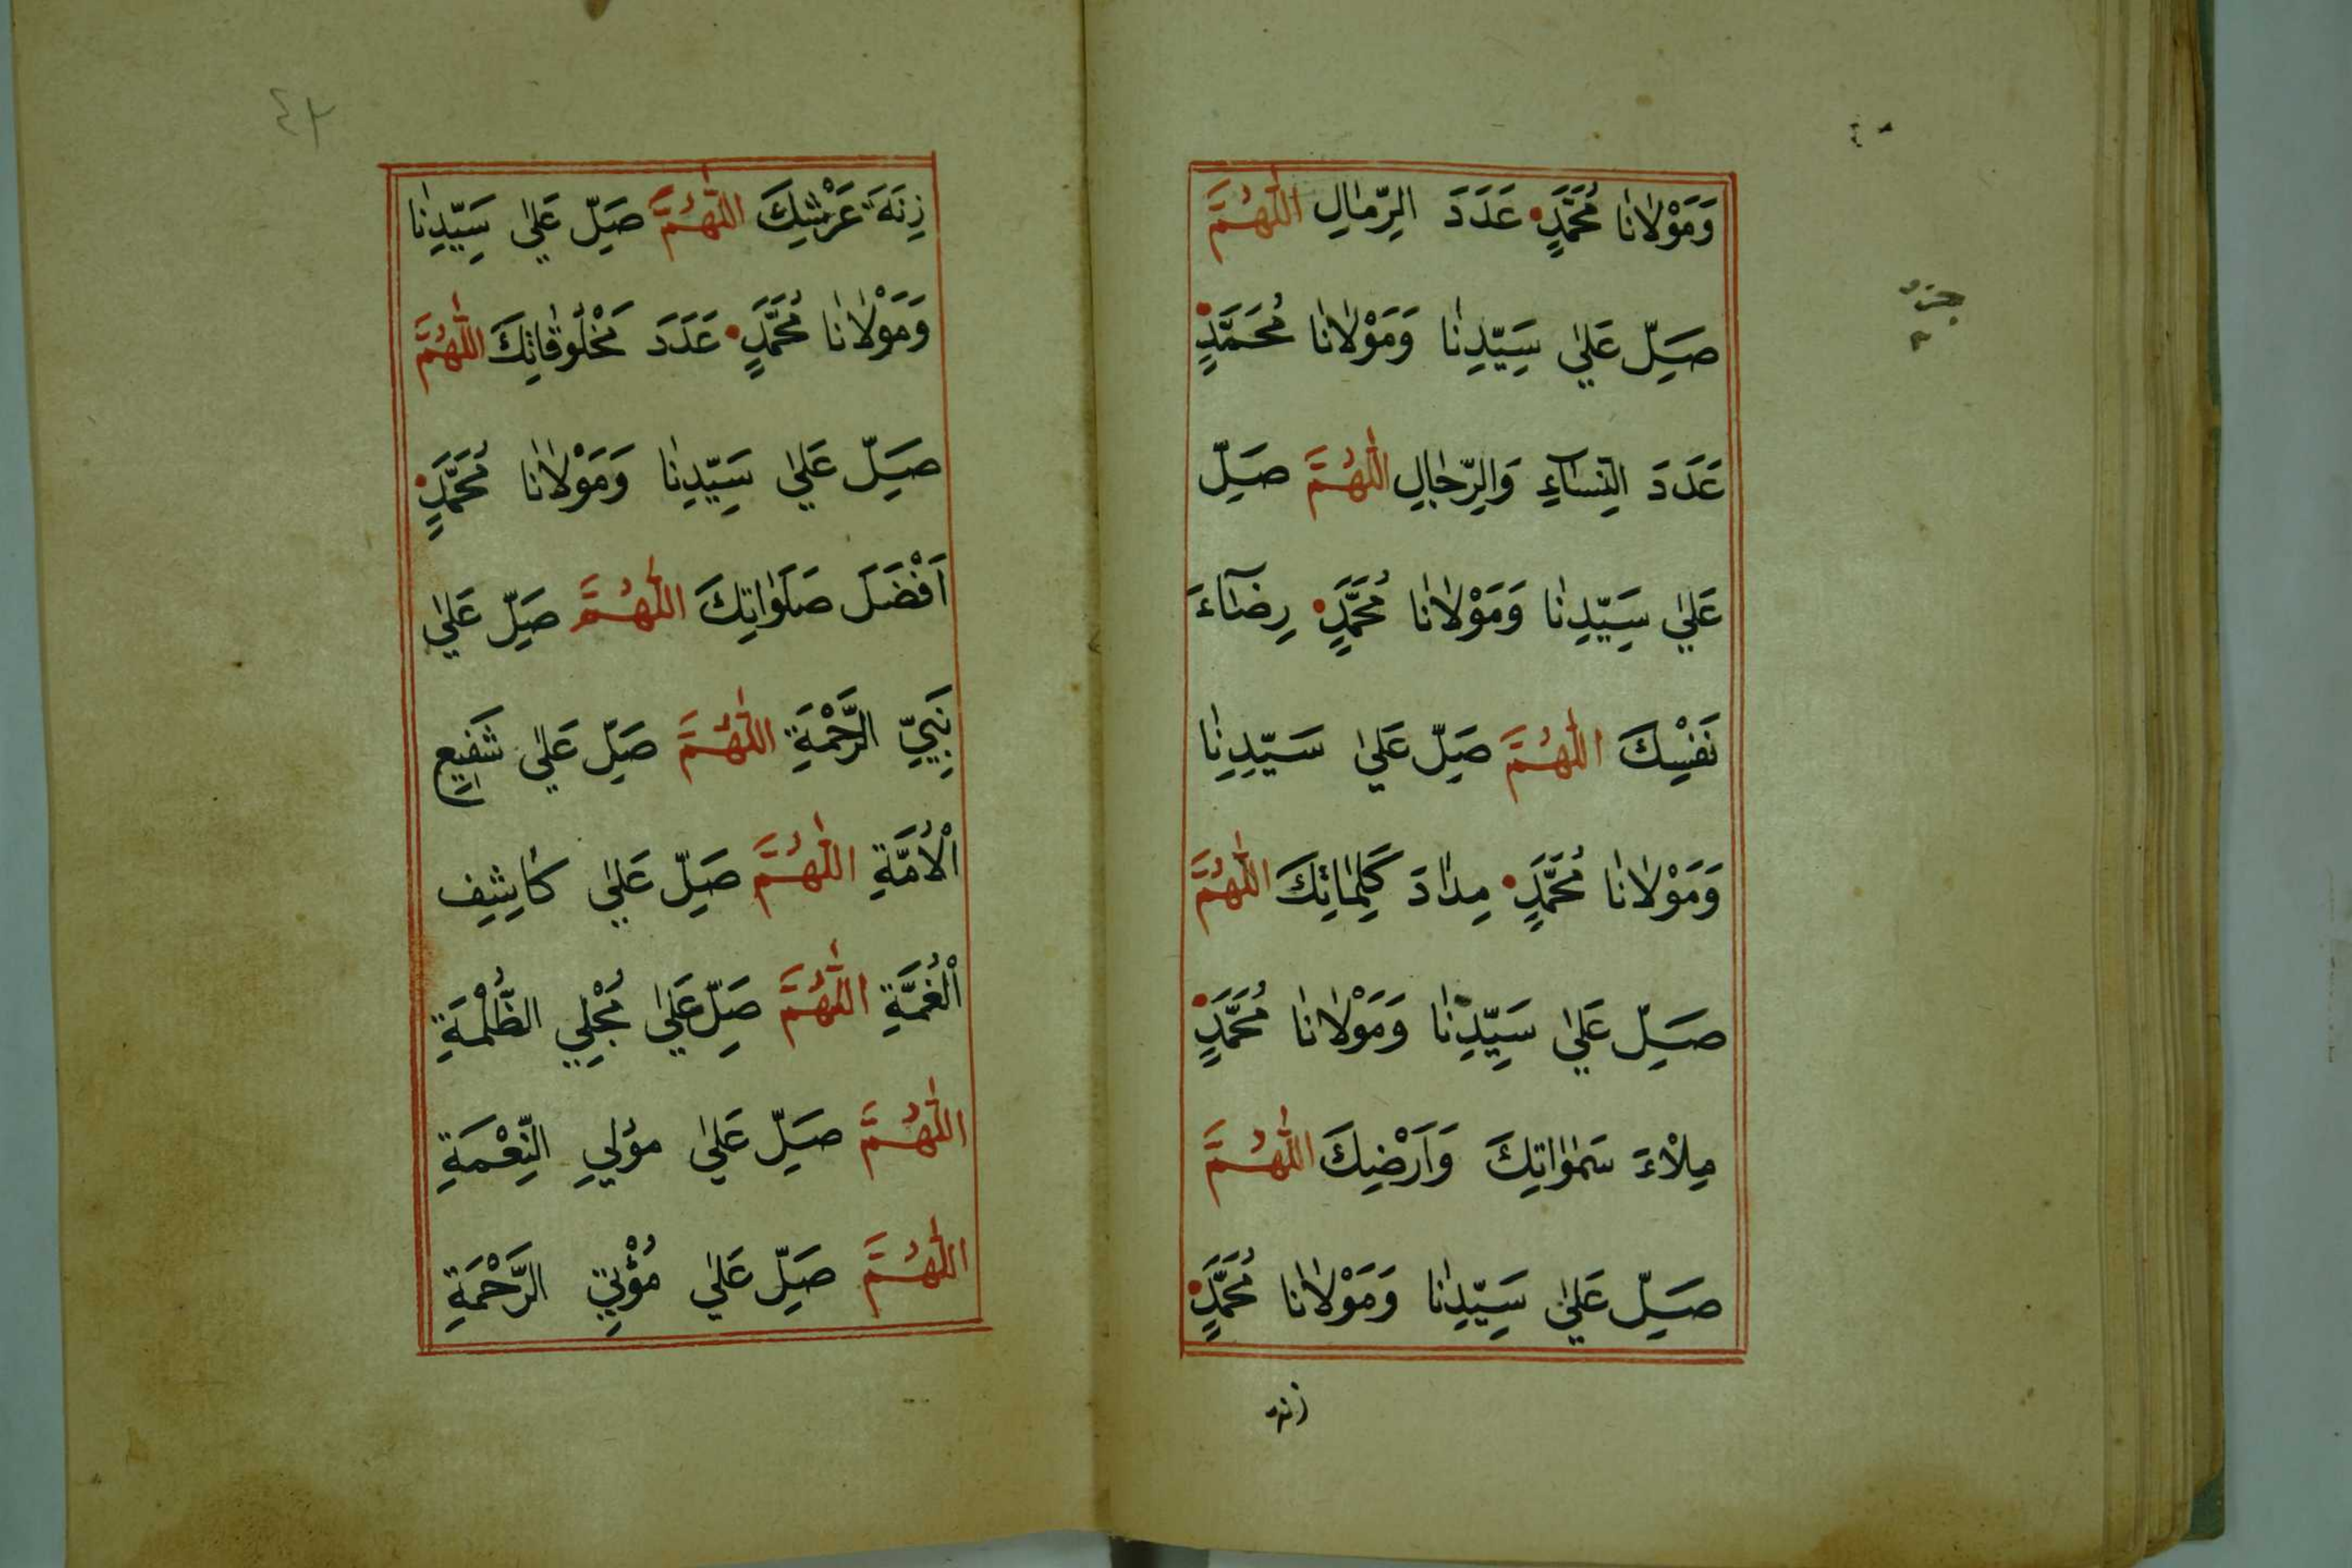 وَمَوْلَانَا مُحَمَّدٍ عَدَدَ الرِّمَالِ اللّٰهُمَّ
صَلِّ عَلٰي سَيِّدِنَا وَمَوْلَانَا مُحَمَّدٍ
عَدَدَ النِّسَآءِ وَالرِّجَالِ اللّٰهُمَّ صَلِّ
عَلٰي سَيِّدِنَا وَمَوْلَانَا مُحَمَّدٍ رِضَآءَ
نَفْسِكَ اللّٰهُمَّ صَلِّ عَلٰي سَيِّدِنَا
وَمَوْلَانَا مُحَمَّدٍ مِدَادَ كَلِمَاتِكَ اللّٰهُمَّ
صَلِّ عَلٰي سَيِّدِنَا وَمَوْلَانَا مُحَمَّدٍ
مِلْاءَ سَمٰوَاتِكَ وَاَرْضِكَ اللّٰهُمَّ
صَلِّ عَلٰي سَيِّدِنَا وَمَوْلَانَا مُحَمَّدٍ
زنه
٤٢
زِنَةَ عَرْشِكَ اللّٰهُمَّ صَلِّ عَلٰي سَيِّدِنَا
وَمَوْلَانَا مُحَمَّدٍ عَدَدَ مَخْلُوقَاتِكَ اللّٰهُمَّ
صَلِّ عَلٰي سَيِّدِنَا وَمَوْلَانَا مُحَمَّدٍ
اَفْضَلَ صَلَوَاتِكَ اللّٰهُمَّ صَلِّ عَلٰي
نَبِيِّ الرَّحْمَةِ اللّٰهُمَّ صَلِّ عَلٰي شَفِيعِ
الْاُمَّةِ اللّٰهُمَّ صَلِّ عَلٰي كَاشِفِ
الْغُمَّةِ اللّٰهُمَّ صَلِّ عَلٰي مُجْلِي الظُّلْمَةِ
اللّٰهُمَّ صَلِّ عَلٰي مؤلي النِّعْمَةِ
اللّٰهُمَّ صَلِّ عَلٰي مُؤْتِي الرَّحْمَةِ